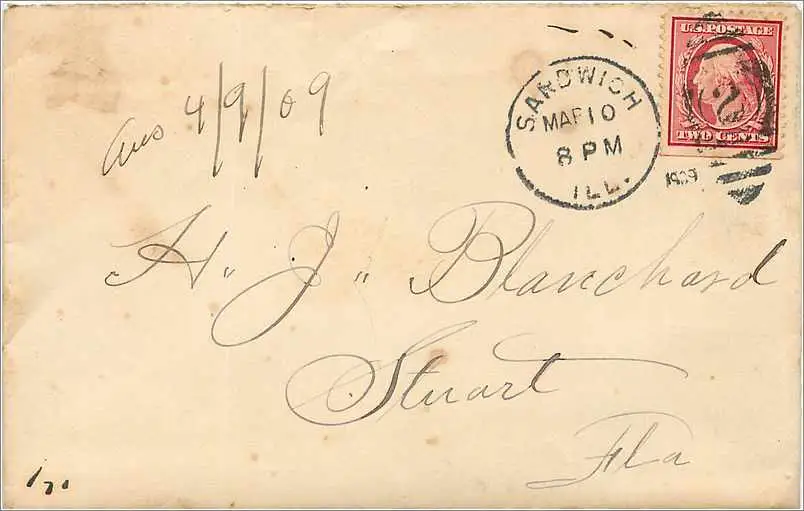 U.S. POSTAGE
TWO CENTS
SANDWICH
MAR 10
8 PM
ILL.
1909
Ans 4/9/09
H. J. Blanchard
Stuart
Fla